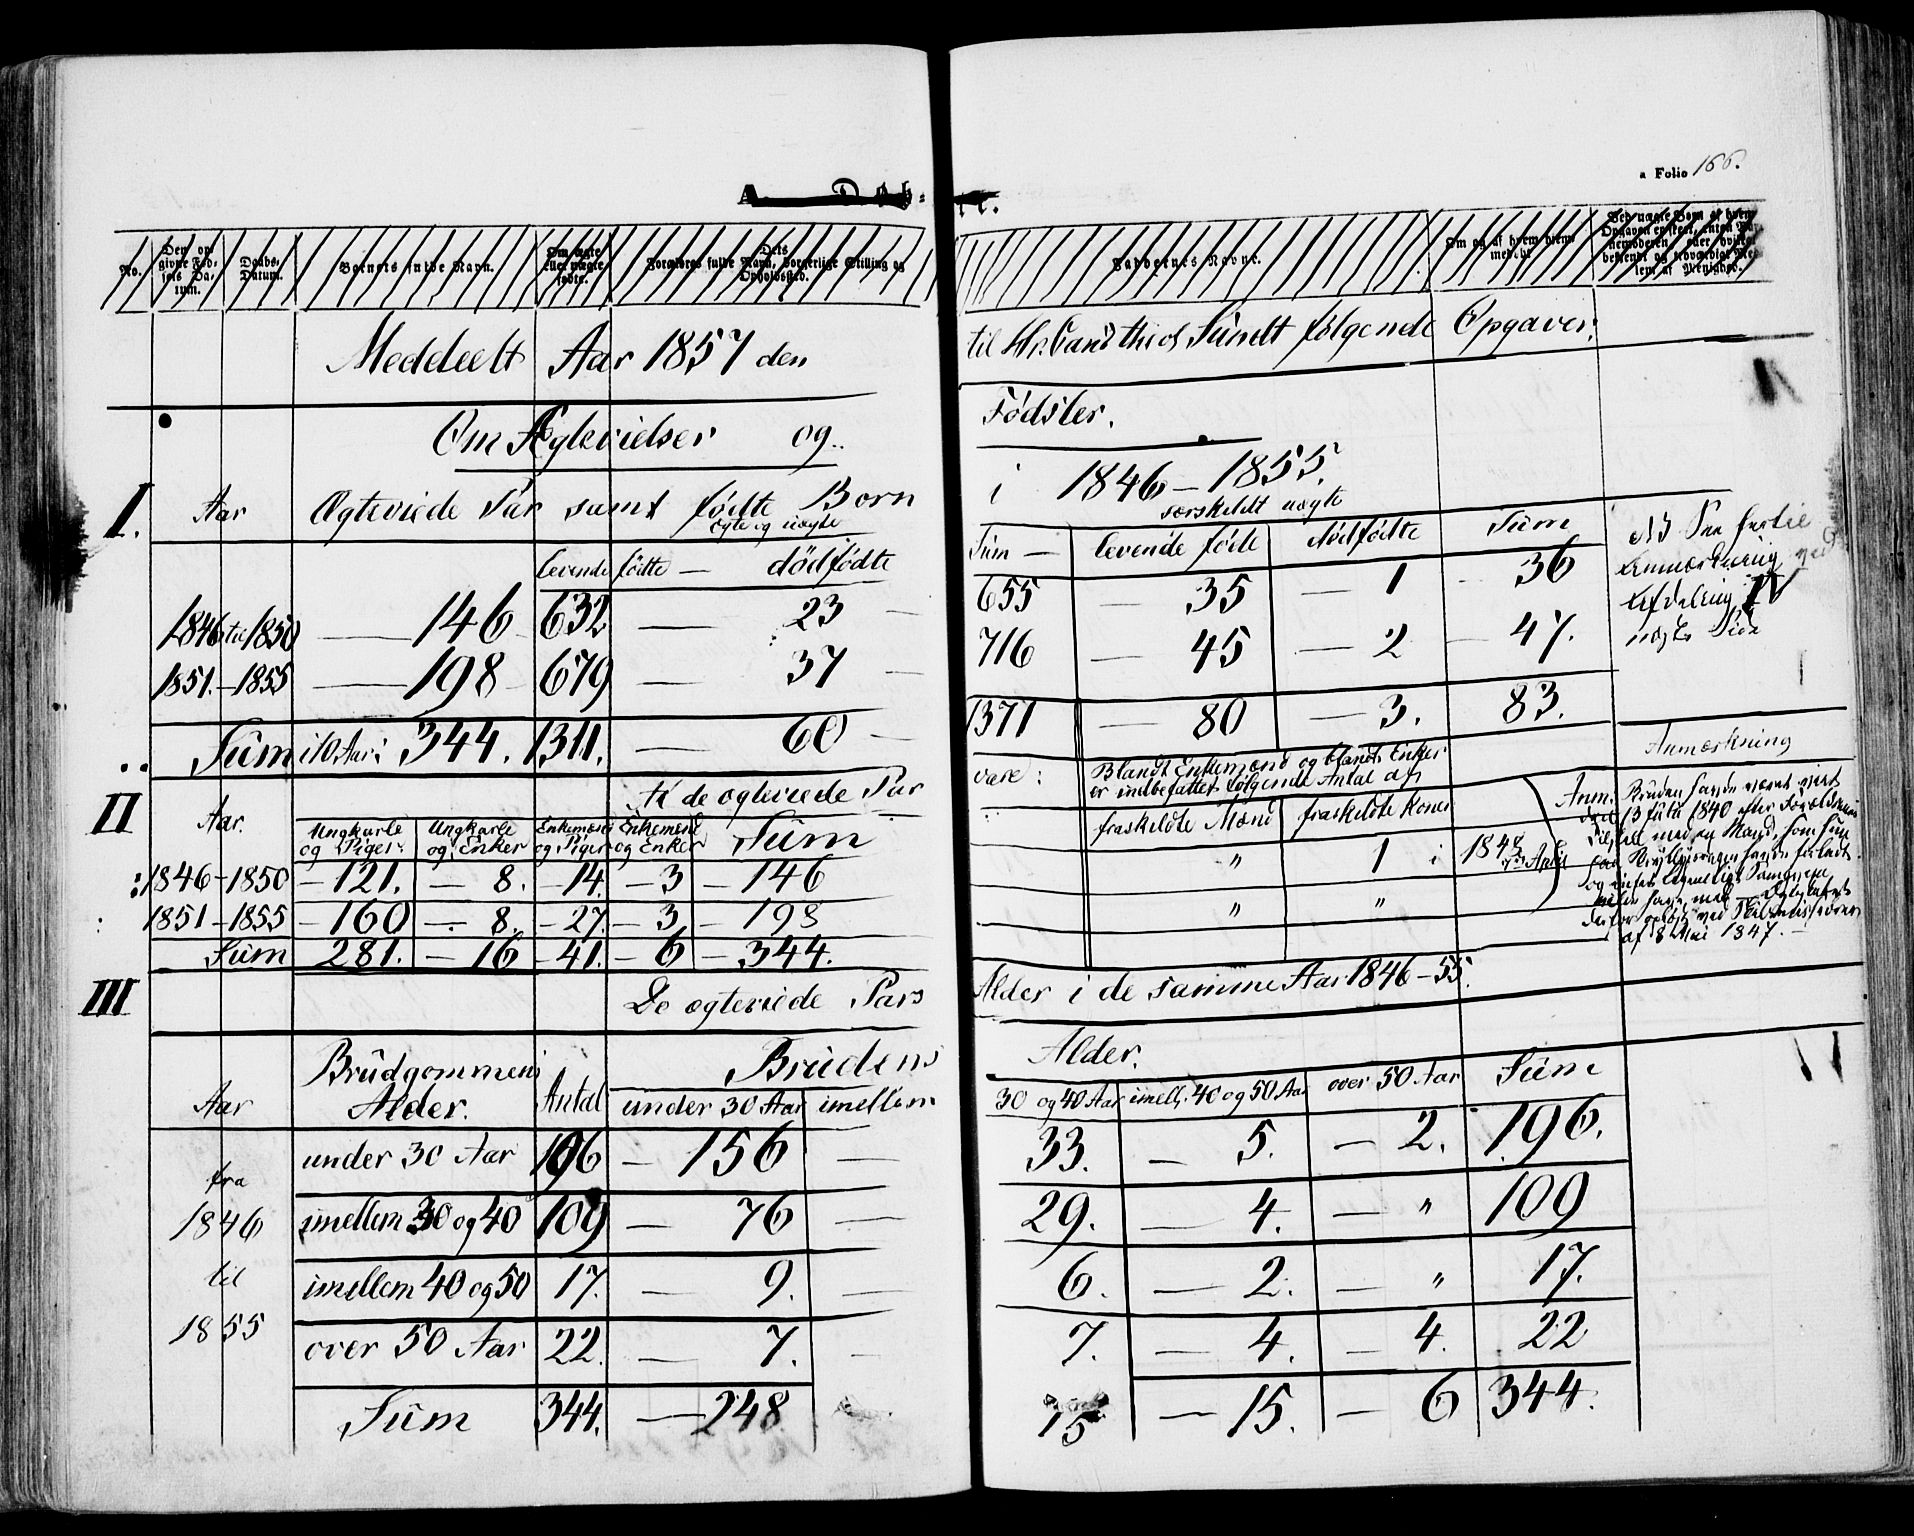 a Folio 166.
A. Døb= te.
No.
Den op-
givne Fød-
sels Da-
tum.
Daabs-
Datum.
Barnets fulde Navn.
Om ægte
eller uægte
født.
Dets
Forældres fulde Navn, borgerlige Stilling og
Opholdssted.
Faddernes Navne.
Om og af hvem hjem-
medøbt
Ved uægte Børn af hvem
Opgaven er skeet, enten Bar-
nemoderen eller hvilket
bekjendt og troværdigt Med-
lem af Menighed.
Meddeelt Aar 1857 den til Hr. Cand theol Sundt følgende Opgaver:
Om Ægtevielser og Fødsler.
i 1846 – 1855.
I. Aar Ægteviede Par samt fødte Børn særskildt uægte
ægte og uægte
levende fødte – dødfødte Sum – levende fødte dødfødte Sum
1846 til 1850 – 146 632 – 23 – 655 – 35 – 1 – 36
1851. – 1855 – 198 – 679 – 37 – 716 – 45 – 2 – 47.
Sum i 10 Aar: 344. 1311. – 60 – 1371 – 80 – 3. 83.
NB See hertil
Anmærkning ved
Afdeling IV
næste Side
II Aar. Af de ægteviede Par vare: Blandt Enkemænd og blandt Enker
er indbefattet følgende Antal af
Ungkarle
og Piger. Ungkarle
og Enker Enkemænd
og Piger Enkemænd
og Enker Sum fraskildte Mænd fraskildte Koner
1846 – 1850 – 121. – 8. – 14. – 3 – 146 " 1 i 1848
1851 – 1855 – 160 – 8. – 27. – 3 – 198 " "
Sum 281. – 16 – 41. – 6 – 344.
Anmærkning
Anm. Bruden havde været viet
den 13 Juli 1840 efter Forældrenes
med en Mand, som hun
paa Bryllupsdagen havde forladt
og
af 8 Mai 1847. –
III De ægteviede Pars Alder i de samme Aar 1846 – 55.
Aar Brudgommens
Alder. Antal Brudens Alder.
under 30 Aar imellem 30 og 40 Aar imell. 40 og 50 Aar over 50 Aar Sum
fra
1846
til
1855
under 30 Aar 196 – 156 – 33. – 5. – 2. 196.
imellem 30 og 40 109 – 76 – 29. – 4. – " 109
imellem 40 og 50 17. – 9. – 6. – 2. – " 17.
over 50 Aar 22. – 7. – 7. – 4. – 4. 22
Sum 344. – 248 75 – 15. – 6 344.